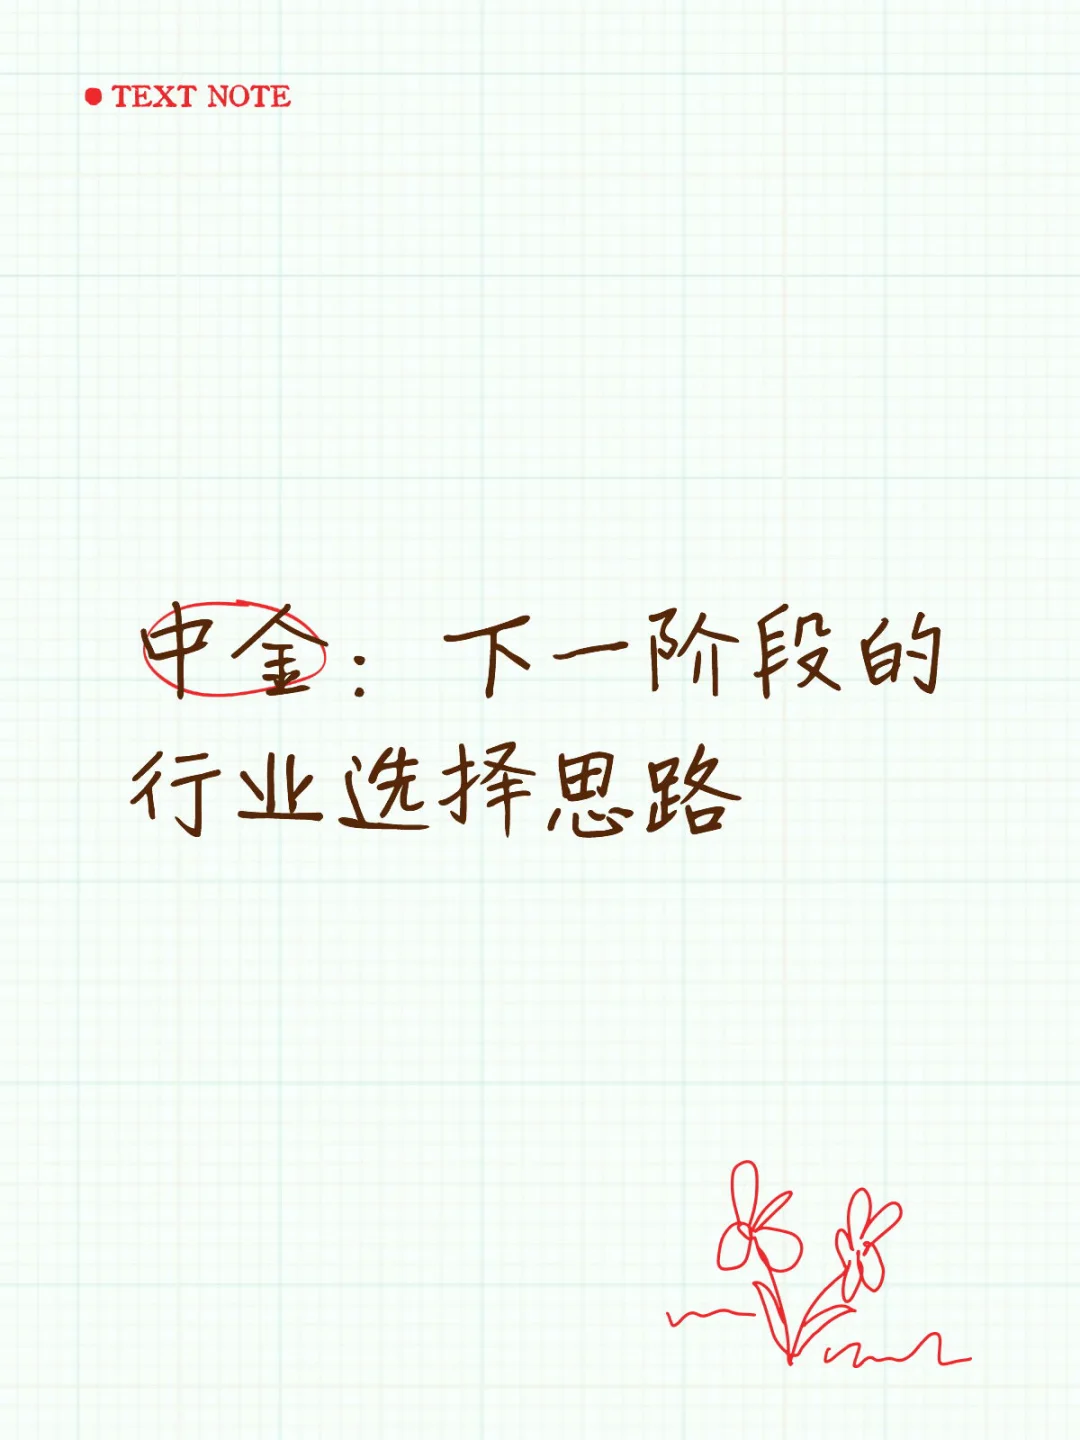 TEXT NOTE
中金：下一阶段的
行业选择思路